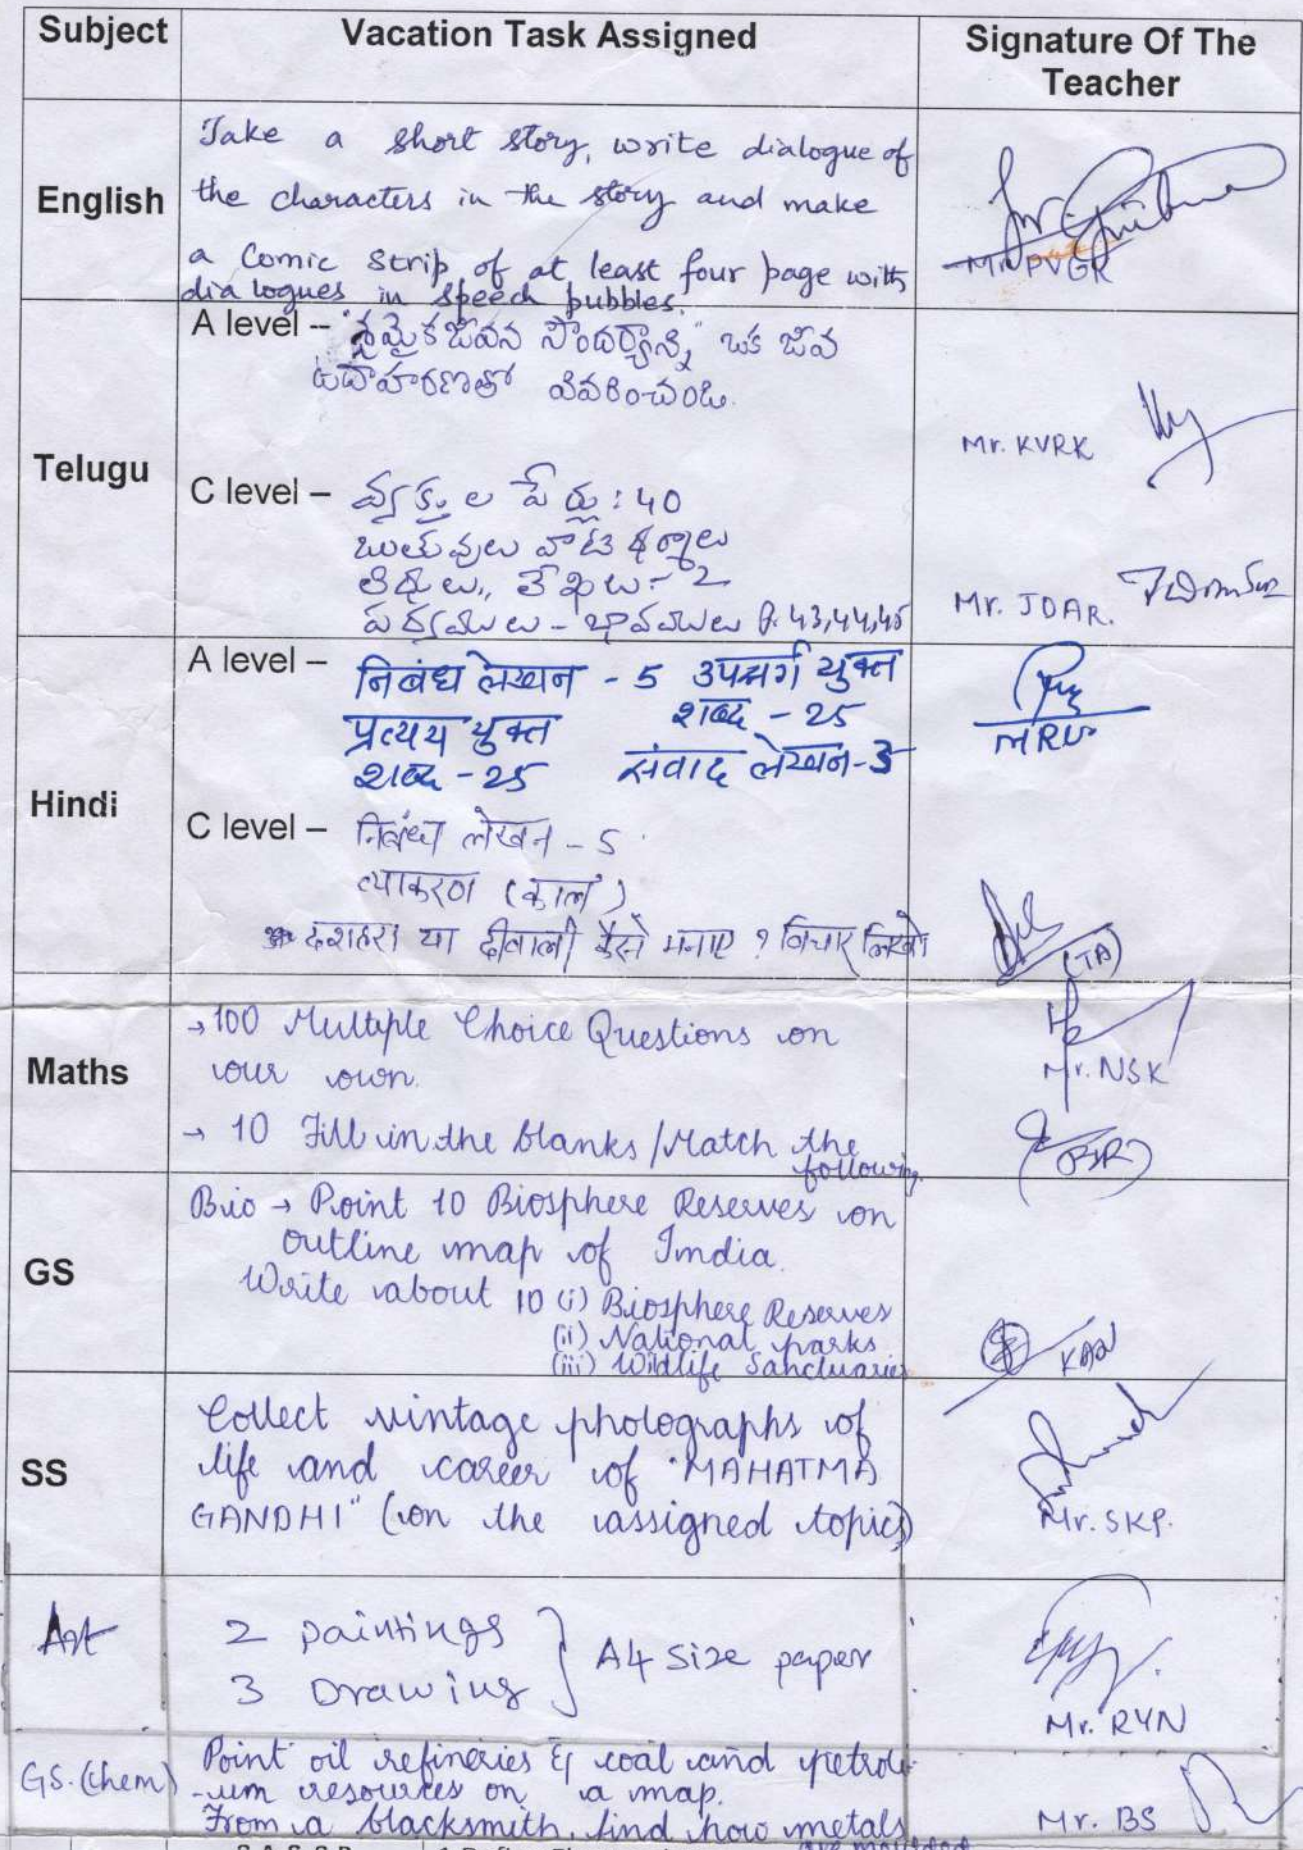 Subject Vacation Task Assigned Signature Of The
Teacher
English
Take a short story, write dialogue of
the characters in the story and make
a Comic Strip of at least four page with
dialogues in speech pubbles.
Mr. PVGR
Telugu
A level – "శ్రమైక జీవన సౌందర్యాన్ని" ఒక జీవ
ఉదాహరణతో వివరించండి.
Mr. KVRK
C level – వ్యక్తుల పేర్లు : 40
ఋతువులు వాటి
లేఖలు - 2
పద్యములు - భావములు P. 43,44,45
Mr. JDAR.
Hindi
A level – निबंध लेखन - 5 उपसर्ग युक्त
प्रत्यय युक्त शब्द - 25
शब्द - 25 संवाद लेखन - 3
MRU
C level – निबंध लेखन - 5
व्याकरण (काल)
दशहरा या दीवाली कैसे मनाए ? विचार लिखो
(TA)
Maths
→ 100 Multiple Choice Questions on
our own.
→ 10 Fill in the blanks / Match the
following.
Mr. NSK
GS
Bio → Point 10 Biosphere Reserves on
outline map of India.
Write about 10 (i) Biosphere Reserves
(ii) National parks
(iii) Wildlife Sanctuaries
SS
Collect vintage photographs of
life and career of "MAHATMA
GANDHI" (on the assigned topics)
Mr. SKP.
Art
2 paintings
3 Drawing } A4 size paper
Mr. RYN
GS. (chem)
Point oil refineries & coal and petrole-
-um resources on a map.
From a blacksmith, find how metals
are moulded
Mr. BS